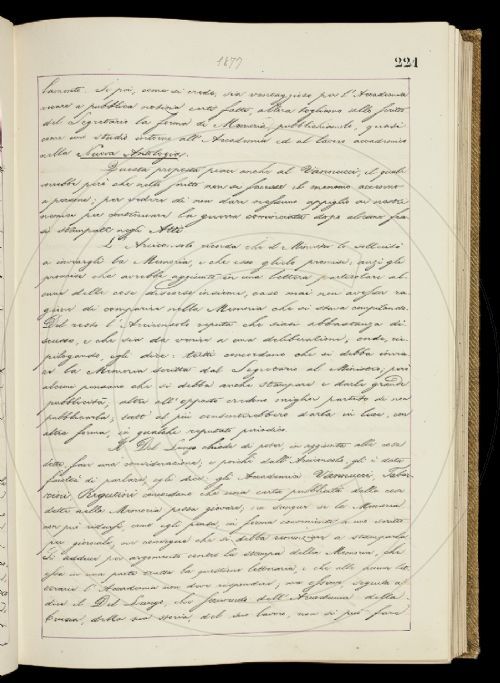 1877
221
lamente. Se poi, come si crede, sia vantaggioso per l'Accademia
recare a pubblica notizia certi fatti, allora togliamo allo scritto
del Segretario la forma di Memoria, pubblichiamolo, quasi
come uno studio intorno all'Accademia ed al lavoro accademico
nella Nuova Antologia.
Questa proposta piace anche al Vannucci, il quale
vorrebbe però che nello scritto non si facesse il menomo accenno
a persone; per vedere di non dare nessuno appiglio ai nostri
nemici per continuare la guerra cominciata dopo alcune frasi
stampate negli Atti.
L'Arciconsolo ricorda che il Ministro lo sollecitò
a inviargli la Memoria, e che esso gliela promise; anzi gli
promise che avrebbe aggiunto in una lettera particolare al-
cune delle cose discorse insieme, caso mai non avesser ra-
gione di comparire nella Memoria che si stava compilando.
Del resto l'Arciconsolo reputa che siasi abbastanza di-
scusso, e che sia da venire a una deliberazione; onde, rie-
pilogando, egli dice: tutti concordano che si debba invia-
re la Memoria scritta dal Segretario al Ministro; però
alcuni pensano che si debba anche stampare e darle grande
pubblicità; altri all'opposto credono miglior partito di non
pubblicarla; tutt'al più consentirebbero darla in luce, con
altra forma, in qualche reputato periodico.
Il Del Lungo chiede di poter, in aggiunta alle cose
dette, fare una considerazione; e poichè dall'Arciconsolo gli è data
facoltà di parlare, egli dice: gli Accademici Vannucci, Tabar-
rini, concordano che una certa pubblicità delle cose
dette nella Memoria possa giovare; ma sempre se la Memoria
non può ridursi, come egli pensa, in forma conveniente a uno scritto
per giornale, ne consegue che si debba rinunziare a stamparla.
Si adduce per argomento contro la stampa della Memoria, che
essa in una parte tratta la questione letteraria, e che alle
l'Accademia non deve rispondere; ma, seguita a
dire il Del Lungo, che facendo dell'Accademia della
Crusca, della sua storia, del suo lavoro, non si può fare